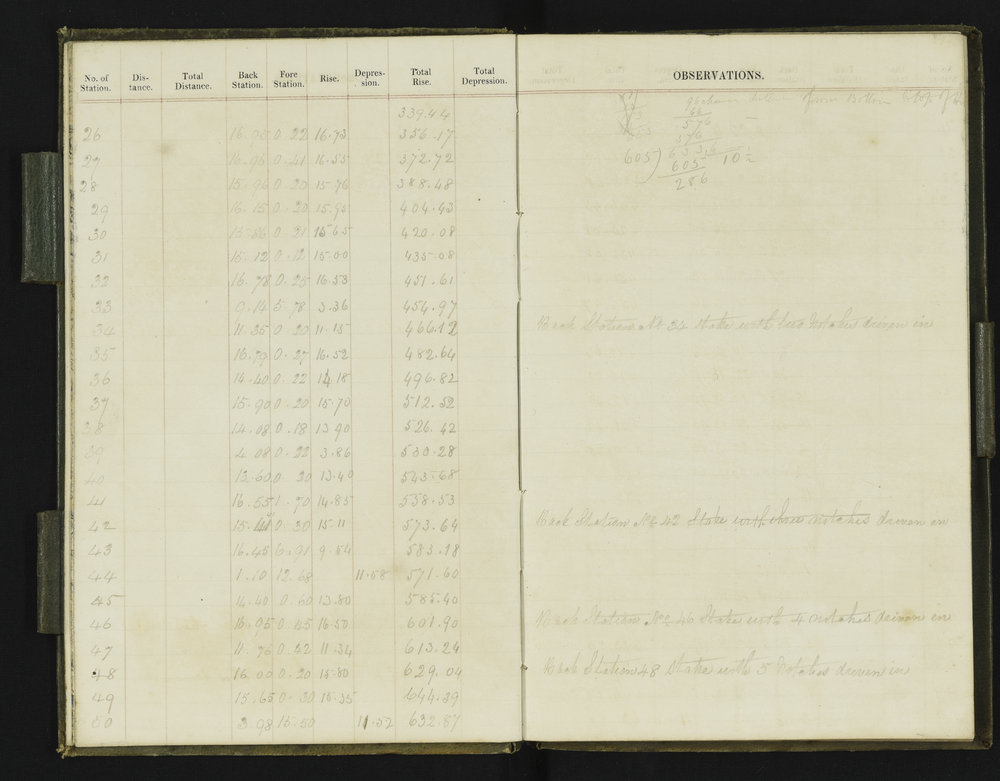 No. of Station. Dis-tance. Total Distance. Back Station. Fore Station. Rise. Depres-sion. Total Rise. Total Depression.
339.44
26 16.95 0.22 16.73 356.17
27 16.96 0.41 16.55 372.72
28 15.96 0.20 15.76 388.48
29 16.15 0.20 15.95 404.43
30 15.86 0.21 15.65 420.08
31 15.12 0.12 15.00 435.08
32 16.78 0.25 16.53 451.61
33 9.14 5.78 3.36 454.97
34 11.35 0.20 11.15 466.12
35 16.79 0.27 16.52 482.64
36 14.40 0.22 14.18 496.82
37 15.90 0.20 15.70 512.52
38 14.08 0.18 13.90 526.42
39 4.08 0.22 3.86 530.28
40 13.60 0.20 13.40 543.68
41 16.55 1.70 14.85 558.53
42 15.41 0.30 15.11 573.64
43 16.45 6.91 9.54 583.18
44 1.10 12.68 11.58 571.60
45 14.40 0.60 13.80 585.40
46 16.95 0.45 16.50 601.90
47 11.76 0.42 11.34 613.24
48 16.00 0.20 15.80 629.04
49 15.65 0.30 15.35 644.39
50 3.98 15.50 11.52 632.87
OBSERVATIONS.
from Bottom to top of
66
576
576
605) 6336 10 1/2
605
286
Back Station No 34 Stake with two Notches driven in
Back Station No 42 Stake with three notches driven in
Back Station No 46 Stake with 4 notches driven in
Back Station 48 Stake with 5 Notches driven in